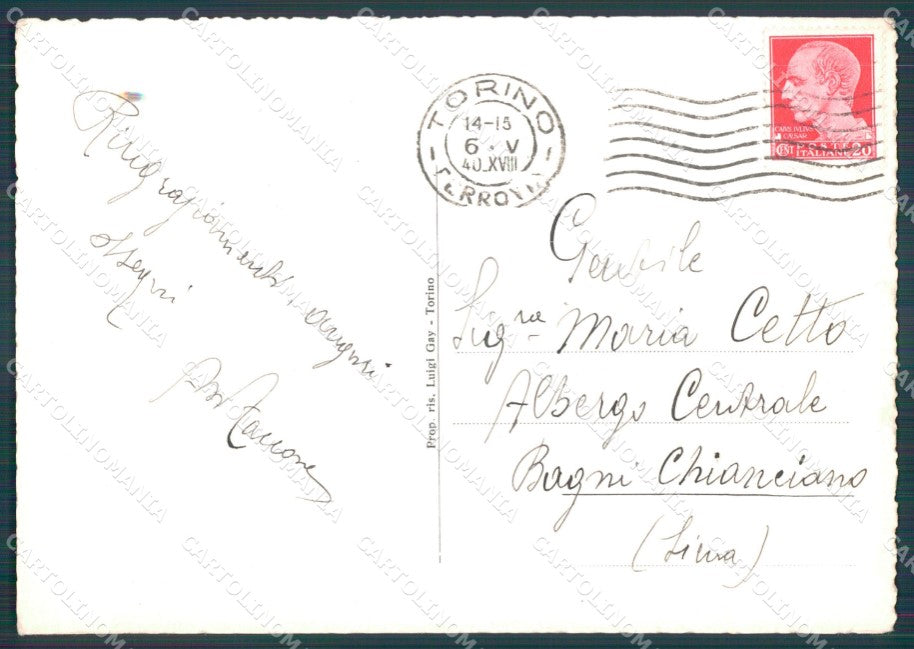 Ringraziamenti, auguri
ossequi
TORINO
14-15
6·V
40.XVIII
FERROVIA
CAIVS IVLIVS
CAESAR
POSTE
ITALIANE 20
Prop. ris. Luigi Gay - Torino
Gentile
Sigra Maria Cetto
Albergo Centrale
Bagni Chianciano
(Siena)
CARTOLINOMANIA